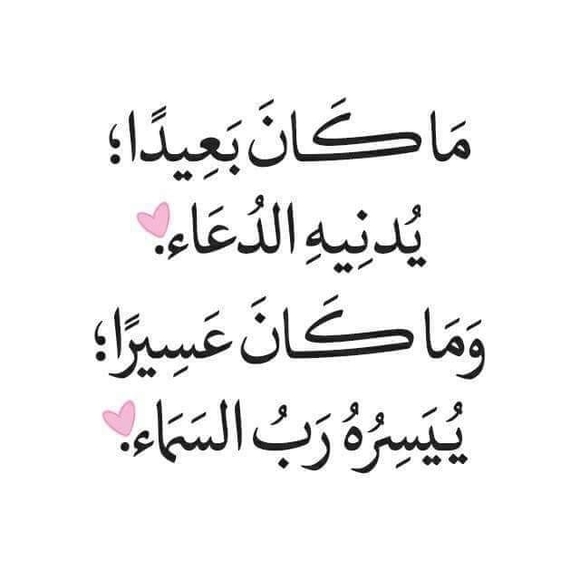 مَا كَانَ بَعِيدًا؛
يُدنِيهِ الدُعَاء.
وَمَا كَانَ عَسِيرًا؛
يُيَسِرُهُ رَبُ السَمَاء.